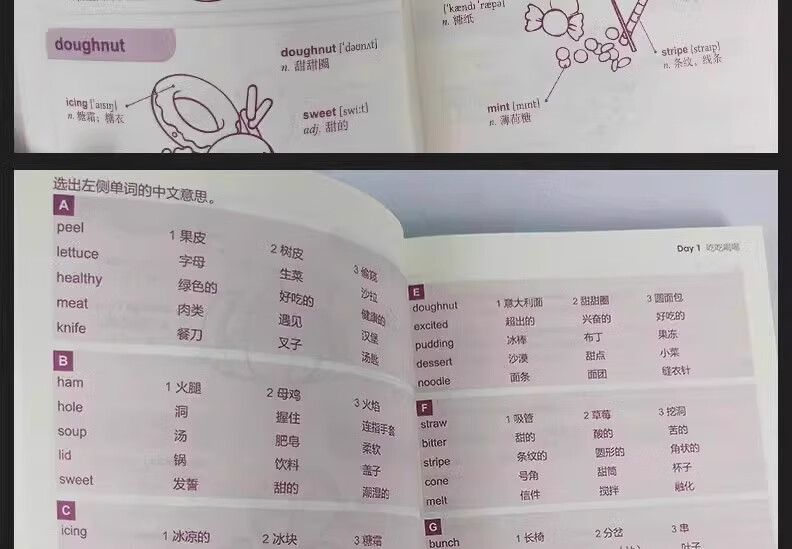 doughnut
doughnut ['dəʊnʌt]
n. 甜甜圈
icing ['aɪsɪŋ]
n. 糖霜；糖衣
sweet [swiːt]
adj. 甜的
['kændɪ 'ræpə]
n. 糖纸
stripe [straɪp]
n. 条纹、线条
mint [mɪnt]
n. 薄荷糖
选出左侧单词的中文意思。
A
peel 1 果皮 2 树皮 3 偷窥
lettuce 字母 生菜 沙拉
healthy 绿色的 好吃的 健康的
meat 肉类 遇见 汉堡
knife 餐刀 叉子 汤匙
B
ham 1 火腿 2 母鸡 3 火焰
hole 洞 握住 连指手套
soup 汤 肥皂 柔软
lid 锅 饮料 盖子
sweet 发誓 甜的 潮湿的
C
icing 1 冰凉的 2 冰块 3 糖霜
Day 1 吃吃喝喝
E
doughnut 1 意大利面 2 甜甜圈 3 圆面包
excited 超出的 兴奋的 好吃的
pudding 冰棒 布丁 果冻
dessert 沙漠 甜点 小菜
noodle 面条 面团 缝衣针
F
straw 1 吸管 2 草莓 3 挖洞
bitter 甜的 酸的 苦的
stripe 条纹的 圆形的 角状的
cone 号角 甜筒 杯子
melt 信件 搅拌 融化
G
bunch 1 长椅 2 分岔 3 串
叶子